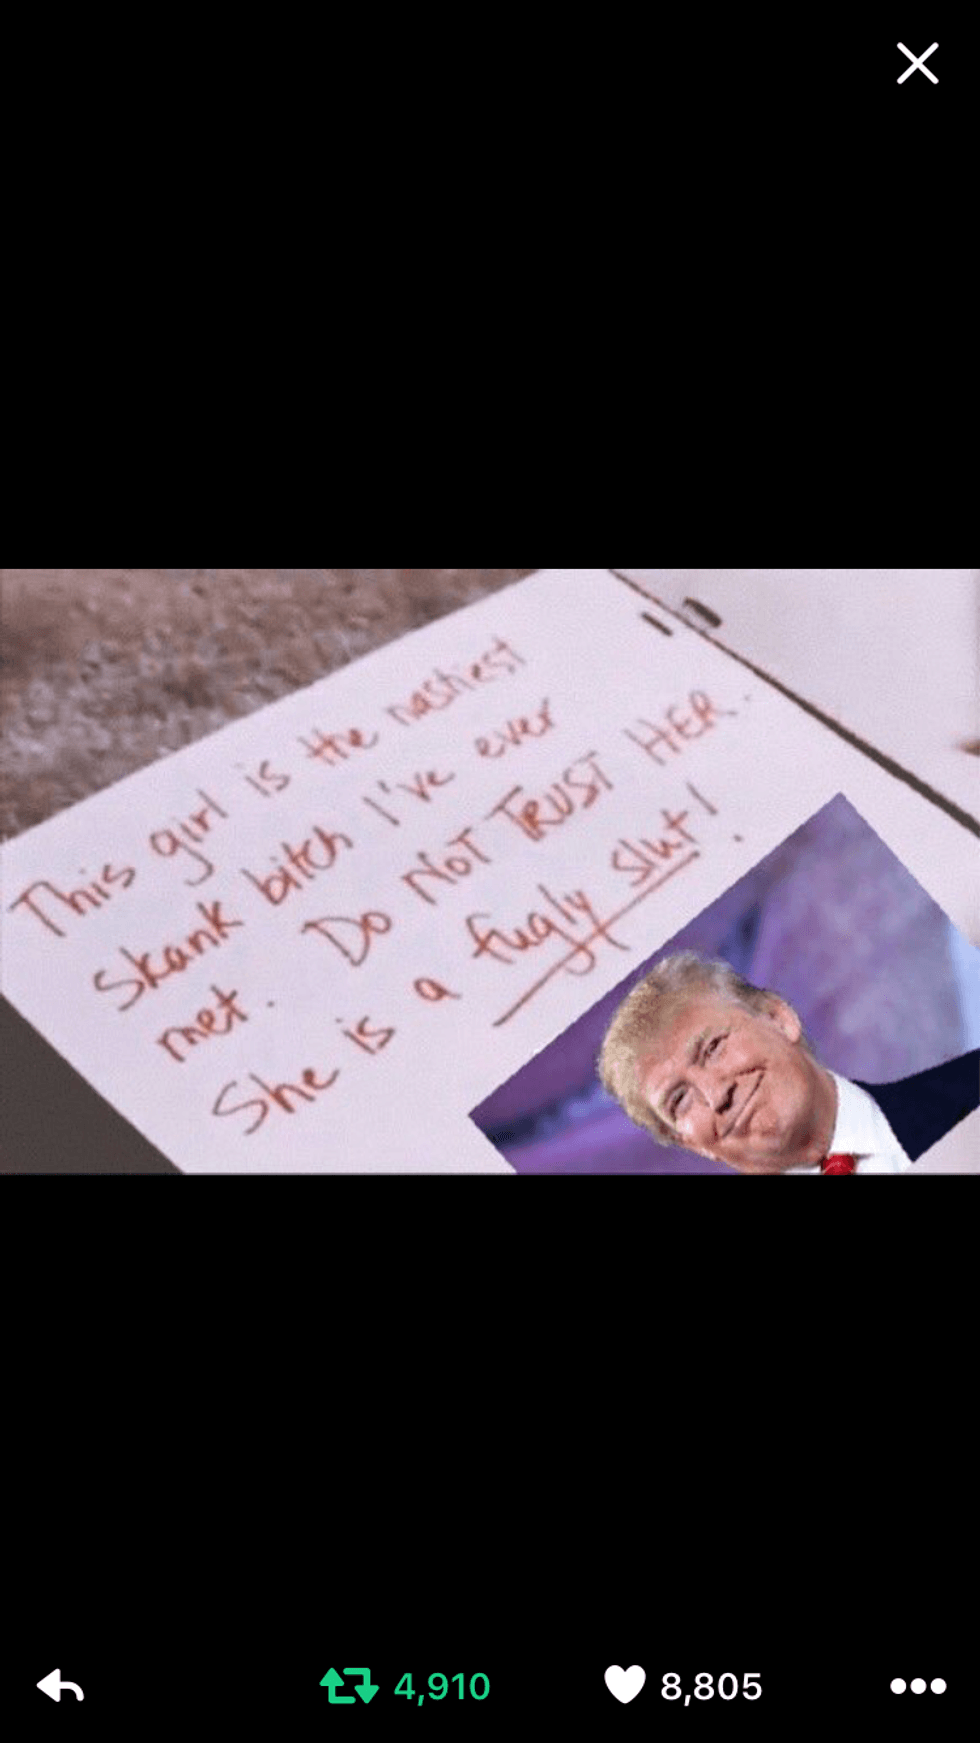 This girl is the nastiest
skank bitch I've ever
met. Do NOT TRUST HER.
She is a fugly slut!
4,910
8,805